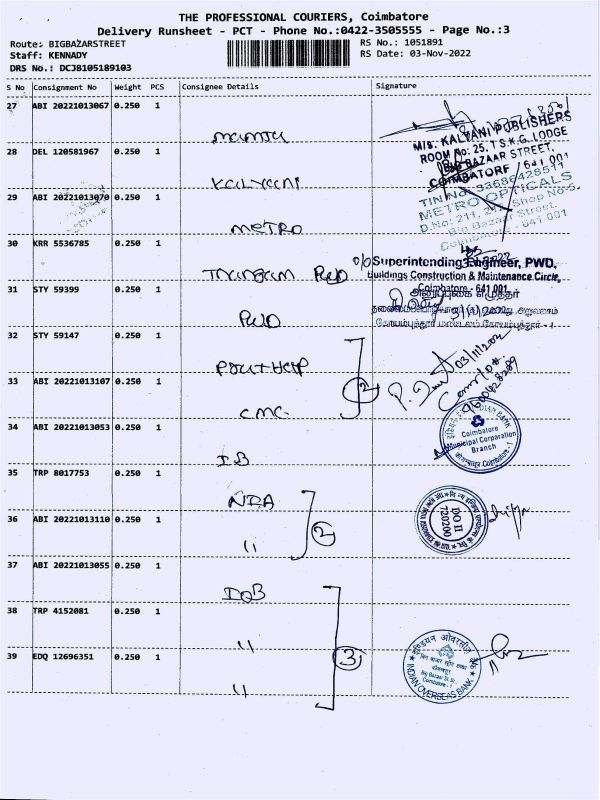 THE PROFESSIONAL COURIERS, Coimbatore
Delivery Runsheet - PCT - Phone No.:0422-3505555 - Page No.:3
Route: BIGBAZARSTREET
RS No.: 1051891
Staff: KENNADY
RS Date: 03-Nov-2022
DRS No.: DCJB105189103
S No Consignment No Weight PCS Consignee Details Signature
27 ABI 20221013067 0.250 1
mamta
M/s. KALYANI PUBLISHERS
ROOM No: 25, T.S.K.G. LODGE
BIG BAZAAR STREET,
COIMBATORE / 641 001
28 DEL 120581967 0.250 1
Kalyani
29 ABI 20221013070 0.250 1
METRO
METRO OPTICALS
Big Bazaar Street,
Coimbatore - 641 001
30 KRR 5536785 0.250 1
PWD
O/o Superintending Engineer, PWD,
Buildings Construction & Maintenance Circle,
Coimbatore - 641 001
31 STY 59399 0.250 1
PWD
32 STY 59147 0.250 1
03/11/202
33 ABI 20221013107 0.250 1
CMC
2
9600428289
34 ABI 20221013053 0.250 1
IB
INDIAN BANK
Coimbatore
Municipal Corporation
Branch
35 TRP 8017753 0.250 1
NIA
36 ABI 20221013110 0.250 1
"
2
DO II
720200
37 ABI 20221013055 0.250 1
IOB
38 TRP 4152081 0.250 1
"
39 EDQ 12696351 0.250 1
"
3
इंडियन ओवरसीज़ बैंक
Big Bazaar St. Br.
Coimbatore - 1
INDIAN OVERSEAS BANK